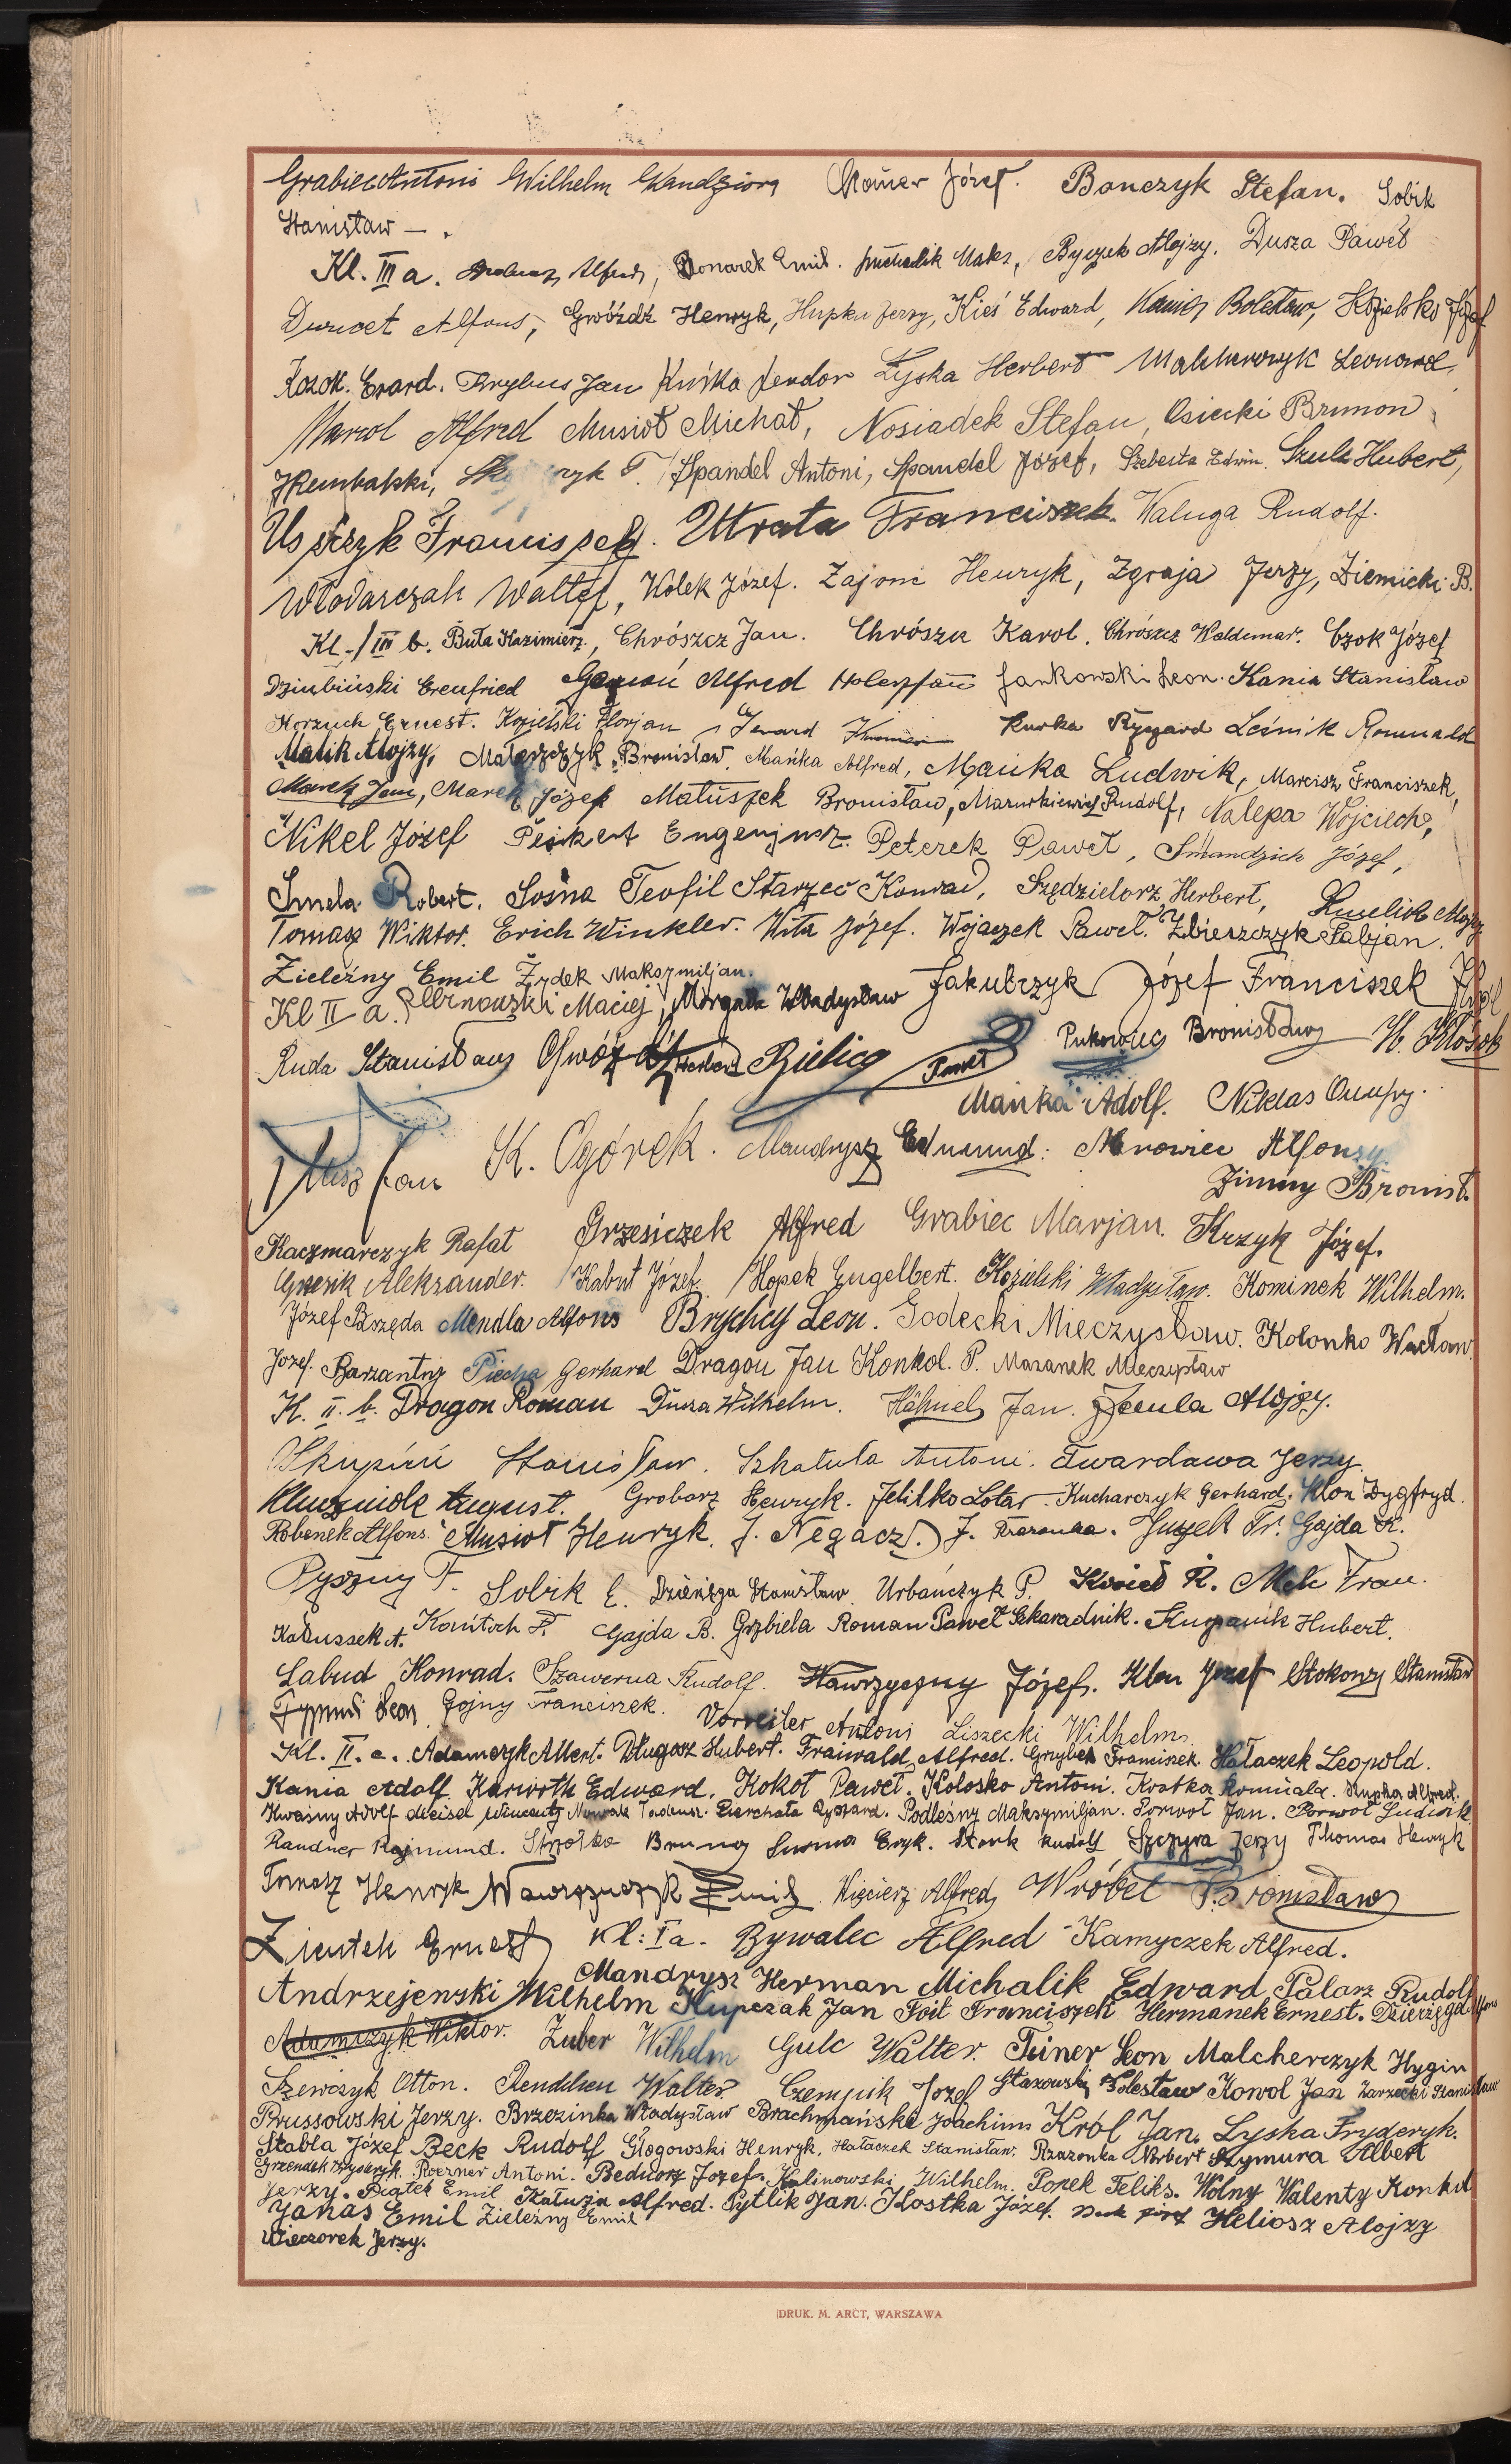 Grabiec Antoni Wilhelm Józef. Banczyk Stefan. Sobik
Stanisław — .
Kl. III a. Alfred, Emil. Michalik Maks, Byczek Alojzy. Dusza Paweł
Alfons, Gwóźdź Henryk, Hupka Jerzy, Kieś Edward, Bolesław, Józef
Kozok. Erard. Jan Kuśka Teodor Łyska Herbert Leonard,
Alfred Musioł Michał, Nosiadek Stefan, Osiecki Brunon
Spandel Antoni, Spandel Józef, Edwin. Szula Hubert,
Franciszek. Utrata Franciszek. Waluga Rudolf.
Włodarczak Walter, Kołek Józef. Zajonc Henryk, Zgraja Jerzy, Ziemicki B.
Kl. III b. Buła Kazimierz, Chrószcz Jan. Chrószcz Karol. Chrószcz Waldemar. Czok Józef
Dziubiński Erenfried Alfred Jankowski Leon. Kania Stanisław
Ernest. Kozielski Florjan Kurka Ryszard Leśnik Romuald
Malik Alojzy, Bronisław, Mańka Alfred, Mańka Ludwik, Marcisz Franciszek,
Marek Jan, Marek Józef Matuszek Bronisław, Mazurkiewicz Rudolf, Nalepa Wojciech,
Nikel Józef Peikert Eugenjusz. Peterek Paweł, Smandzich Józef,
Smela Robert. Sośna Teofil Starzec Konrad, Szędzielorz Herbert,
Tomasz Wiktor. Erich Winkler. Wita Józef. Wojaczek Paweł. Zbieszczyk Fabjan.
Zieleźny Emil Żydek Maksymiljan.
Kl II a. Maciej, Morgała Władysław Jakubczyk Józef Franciszek
Ruda Stanisław Gwóźdź Bielica Paweł Pukowiec Bronisław H. Kłosok
Mańka Adolf. Niklas Onufry.
Jan K. Ogórek. Mandrysz Edmund. Mrowiec Alfonsy
Zimny Bronist.
Kaczmarczyk Rafał Grzesiczek Alfred Grabiec Marjan. Krzyk Józef.
Aleksander. Kabut Józef. Hopek Engelbert. Kozielski Władysław. Kominek Wilhelm.
Józef Brzęda Mendla Alfons Brychcy Leon. Godecki Mieczysław. Kolonko Wacław.
Józef. Barzantny Piecha Gerhard Dragon Jan Konkol. P. Mazanek Mieczysław
K. II. b. Dragon Roman Dusza Wilhelm. Hähnel Jan. Alojzy.
Skupiń Stanisław. Szkatuła Antoni. Twardawa Jerzy.
August. Grobarz Henryk. Jelitko Lotar. Kucharczyk Gerhard. Klon Zygfryd.
Robenek Alfons. Musioł Henryk. J. Negacz. J. Guzek Fr. Gajda K.
Pyszny F. Sobik E. Dzienięga Stanisław. Urbańczyk P. Kozieł R. Mek Fran.
Kabussek A. Konitsch F. Gajda B. Grzbiela Roman Paweł Szkaradnik. Hubert.
Labud Konrad. Szawerna Rudolf. Wawrzyczny Józef. Klon Józef Stokowy Stanisław
Leon. Gojny Franciszek. Vorreiter Antoni Liszecki Wilhelm.
Kl. II. c. Adamczyk Albert. Długosz Hubert. Fraiwald Alfred. Franciszek. Hałaczek Leopold.
Kania Adolf. Karwoth Edward. Kokot Paweł. Kolosko Antoni. Kostka Romuald. Krupka Alfred.
Kwaśny Adolf Meisel Wincenty Nowak Tadeusz. Pierchała Ryszard. Podleśny Maksymiljan. Porwoł Jan. Porwoł Ludwik
Randner Rajmund. Strzołka Bruno Eryk. Stork Rudolf Szczyra Jerzy Thomas Henryk
Tomasz Henryk Wawrzynczyk Emil Więcierz Alfred, Wróbel Bronisław
Zientek Ernest Kl: I a. Bywalec Alfred Kamyczek Alfred.
Mandrysz Herman Michalik Edward Palarz Rudolf
Andrzejewski Wilhelm Kupczak Jan Foit Franciszek Hermanek Ernest. Dzierzęga Alfons
Adamczyk Wiktor. Zuber Wilhelm Gulc Walter. Feiner Leon Malcherczyk Hygin
Szewczyk Otton. Walter. Czempik Józef Stazowski Bolesław Kowol Jan Zarzecki Stanisław
Prussowski Jerzy. Brzezinka Władysław Brachmański Joachim Król Jan. Lyska Fryderyk.
Stabla Józef Beck Rudolf Głogowski Henryk. Hałaczek Stanisław. Rzazonka Norbert Szymura Albert
Grzendek Fryderyk. Roezner Antoni. Bednorz Józef. Kalinowski Wilhelm. Popek Feliks. Wolny Walenty Konkol
Jerzy. Piątek Emil Kałuża Alfred. Pytlik Jan. Kostka Józef. Józef Heliosz Alojzy
Janas Emil Zieleźny Emil
Wieczorek Jerzy.
DRUK. M. ARCT, WARSZAWA